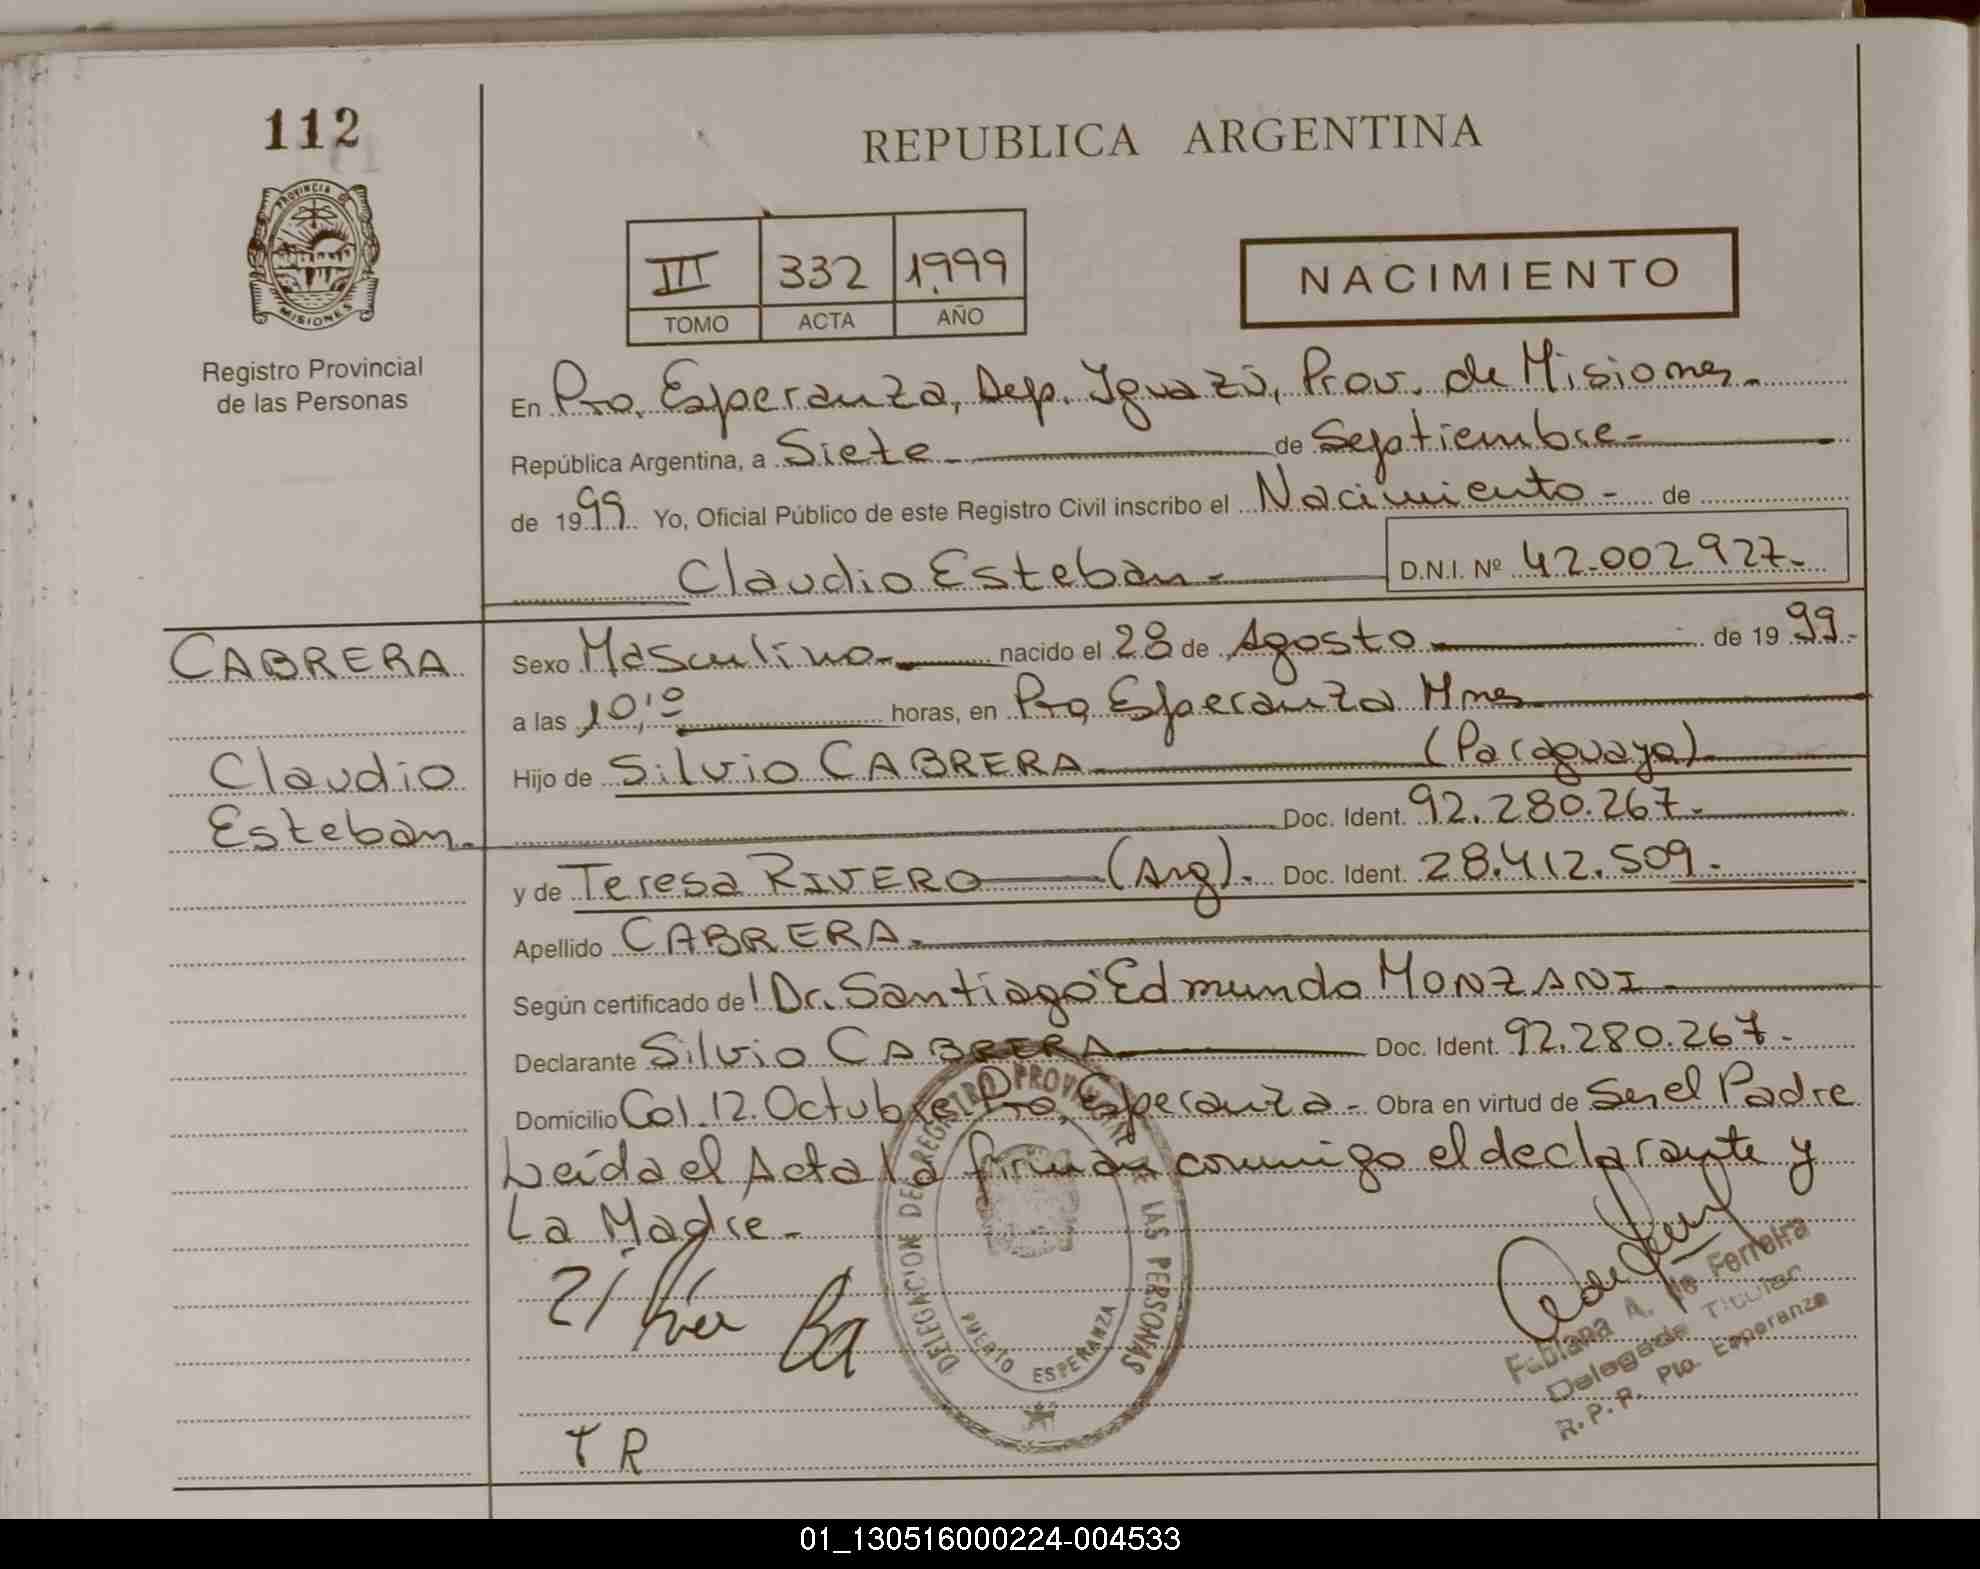 112
REPUBLICA ARGENTINA
PROVINCIA DE
MISIONES
Registro Provincial
de las Personas
III 332 1.999
TOMO ACTA AÑO
NACIMIENTO
En Pto. Esperanza, Dep. Iguazú, Prov. de Misiones-
República Argentina, a Siete- de Septiembre-
de 1999 Yo, Oficial Público de este Registro Civil inscribo el Nacimiento- de
Claudio Esteban- D.N.I. Nº 42.002927-
CABRERA
Claudio
Esteban-
Sexo Masculino- nacido el 28 de Agosto de 1999-
a las 10,10 horas, en Pto, Esperanza Mnes
Hijo de Silvio CABRERA (Paraguaya)
Doc. Ident. 92.280.267-
y de Teresa RIVERO (Arg). Doc. Ident. 28.412.509-
Apellido CABRERA-
Según certificado de Dr. Santiago Edmundo MONZANI-
Declarante Silvio CABRERA Doc. Ident. 92.280.267-
Domicilio Col. 12. Octubre Pto, Esperanza- Obra en virtud de Ser el Padre
Leída el Acta la firman conmigo el declarante y
La Madre-
DELEGACION DEL REGISTRO PROVINCIAL DE LAS PERSONAS
PUERTO ESPERANZA
Fabiana A. de Ferreira
Delegada Titular
R.P.P. Pto. Esperanza
T R
01_130516000224-004533